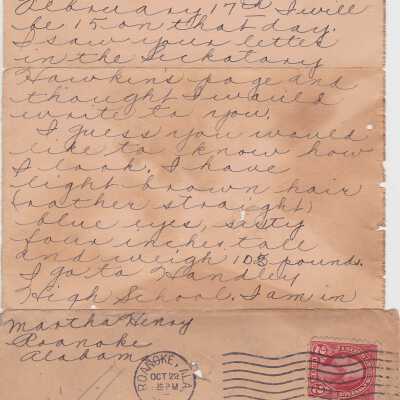 February 17th I will
be 15 on that day.
I saw your letter
in the
Hawkins page and
thought I would
write to you.
I guess you would
like to know how
I look. I have
light brown hair
(rather straight)
blue eyes, sixty
four inches tall
and weigh 103 pounds.
I go to Handley
High School. I am in
Martha Henry
Roanoke
Alabam
ROANOKE, ALA
OCT 22
PM